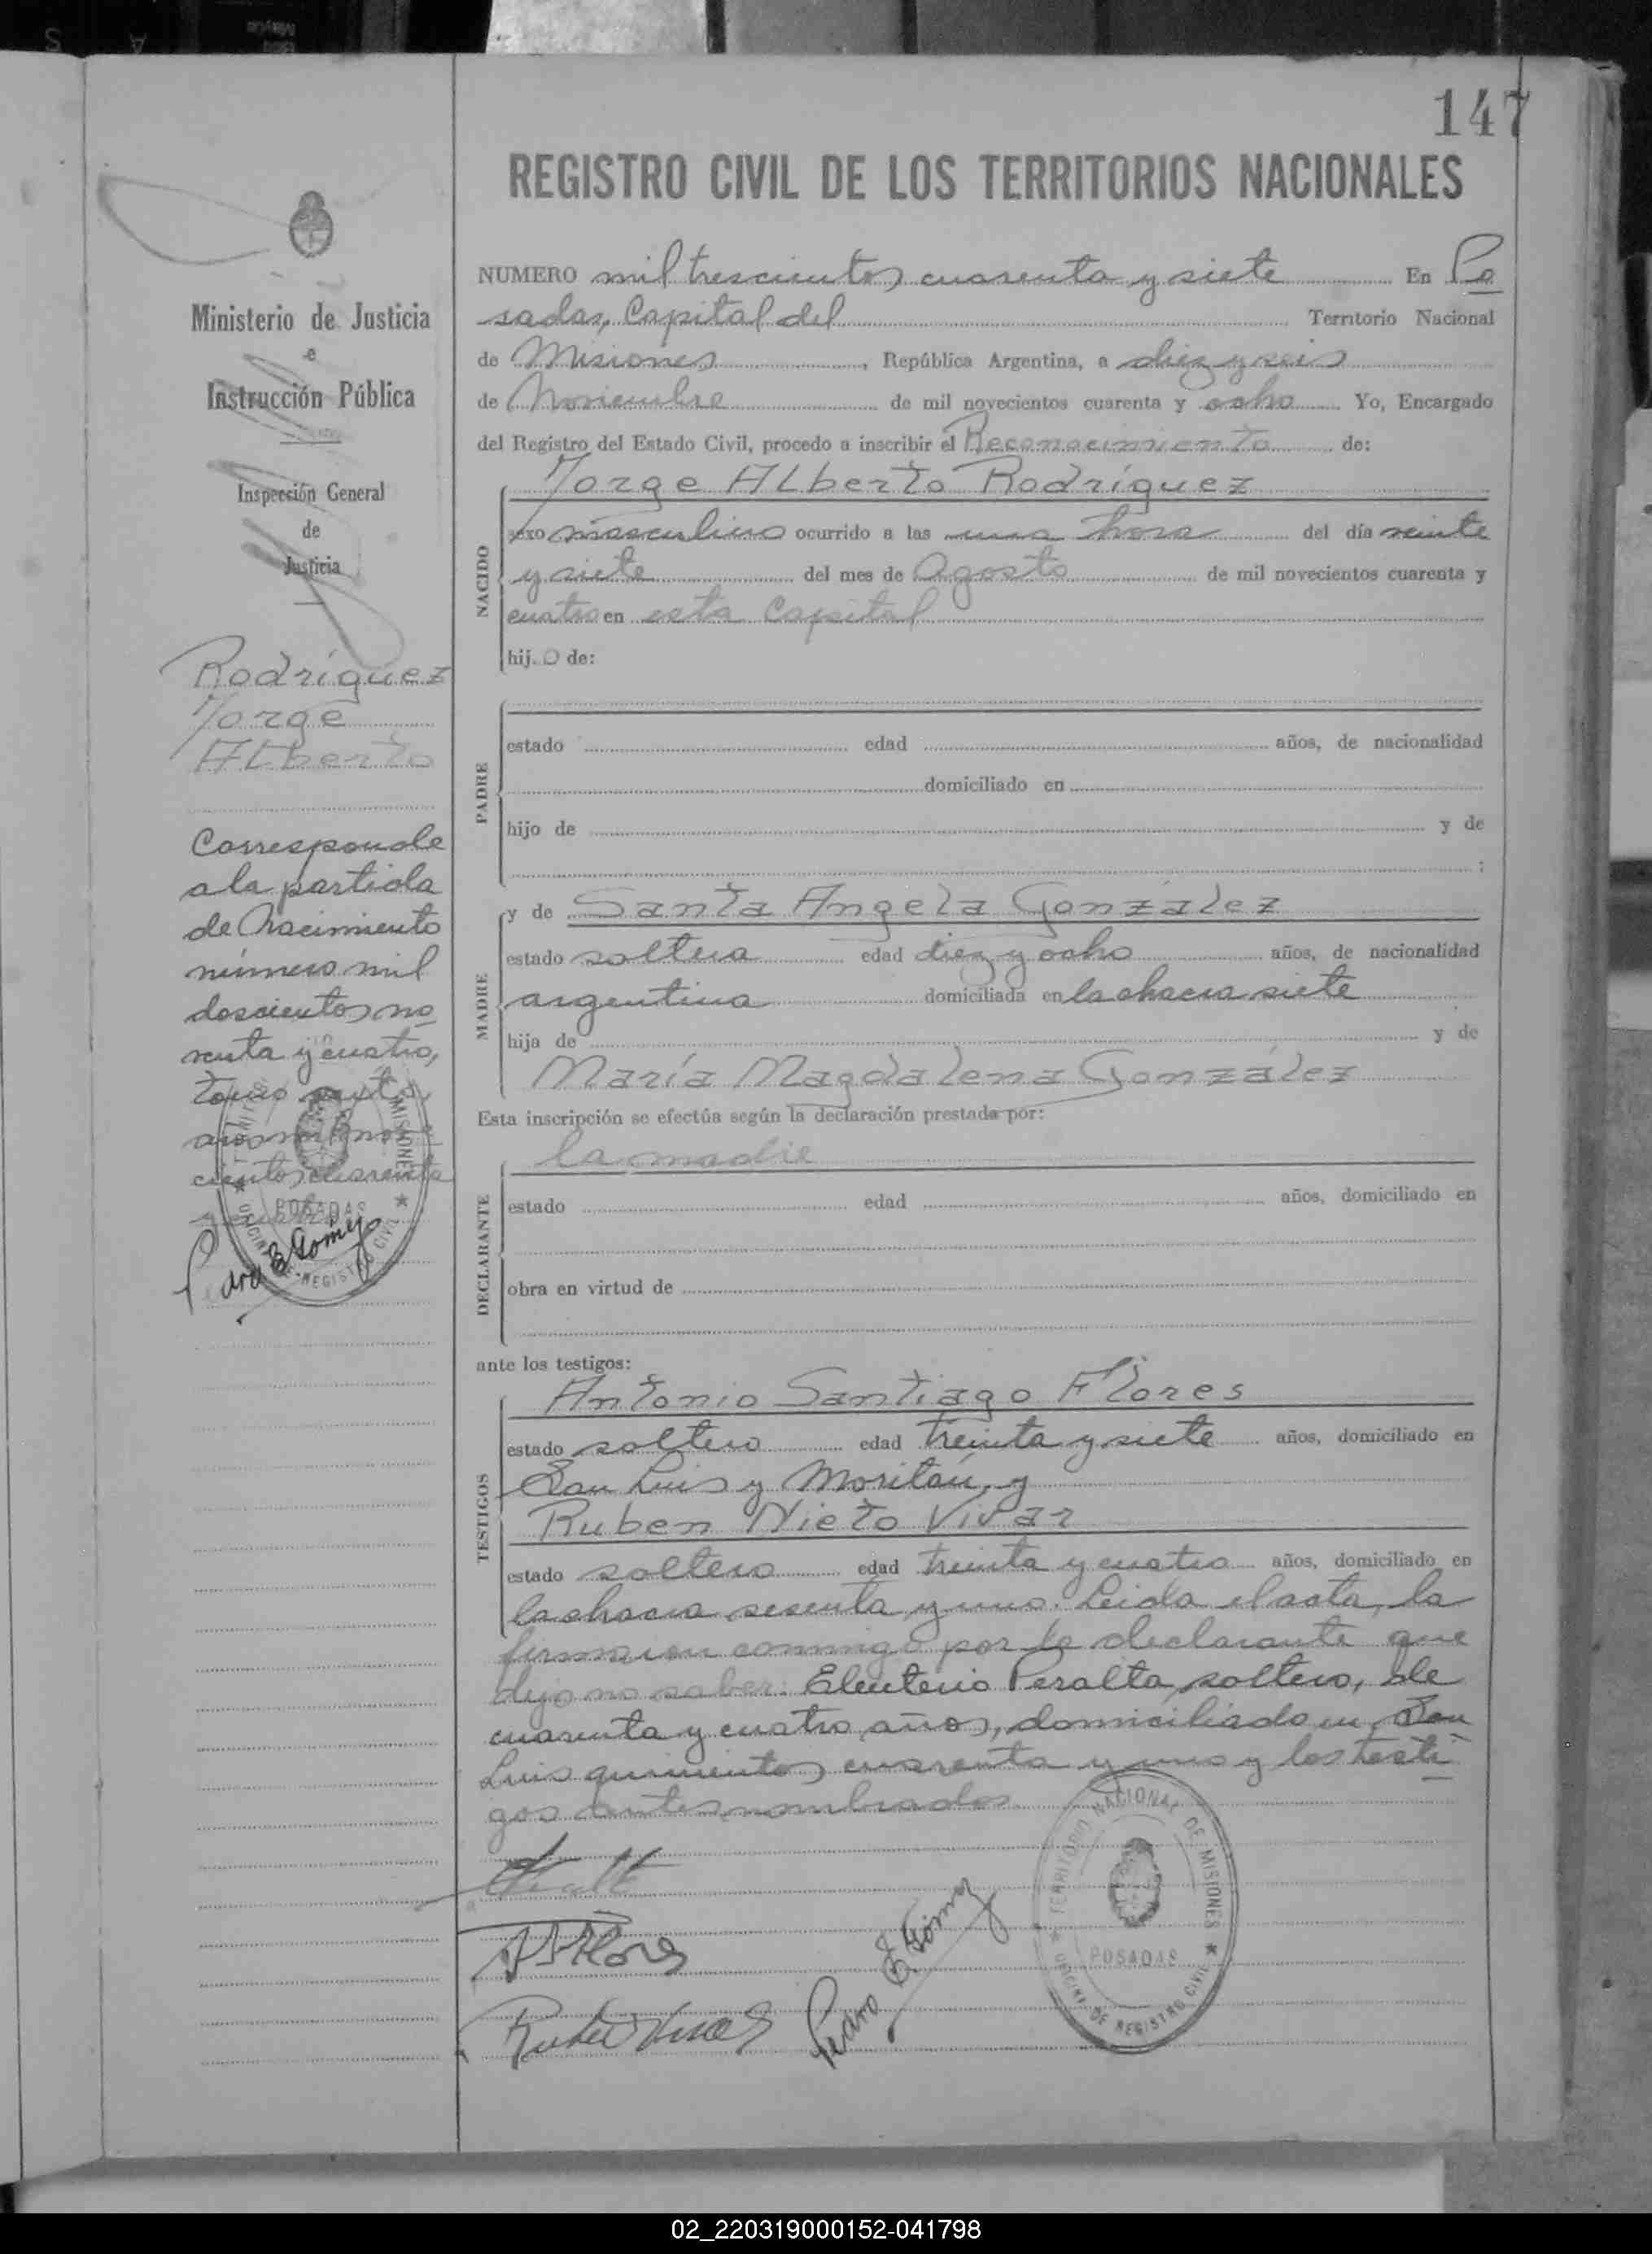 147
REGISTRO CIVIL DE LOS TERRITORIOS NACIONALES
Ministerio de Justicia
e
Instrucción Pública
Inspección General
de
Justicia
Rodríguez
Jorge
Alberto
Corresponde
a la partida
de Nacimiento
número mil
doscientos no
venta y cuatro,
tomo sexto,
año mil nove
cientos cuarenta
y cuatro
Pedro E. Gómez
TERRITORIO NACIONAL DE MISIONES
POSADAS
OFICINA DE REGISTRO CIVIL
NUMERO mil trescientos cuarenta y siete En Po
sadas, Capital del Territorio Nacional
de Misiones, República Argentina, a diez y seis
de Noviembre de mil novecientos cuarenta y ocho Yo, Encargado
del Registro del Estado Civil, procedo a inscribir el Reconocimiento de:
NACIDO
Jorge Alberto Rodríguez
sexo masculino ocurrido a las una hora del día veinte
y siete del mes de Agosto de mil novecientos cuarenta y
cuatro en esta Capital
hijo de:
PADRE
estado edad años, de nacionalidad
domiciliado en
hijo de y de
;
MADRE
y de Santa Angela González
estado soltera edad diez y ocho años, de nacionalidad
argentina domiciliada en la chacra siete
hija de y de
María Magdalena González
Esta inscripción se efectúa según la declaración prestada por:
DECLARANTE
la madre
estado edad años, domiciliado en
obra en virtud de
ante los testigos:
TESTIGOS
Antonio Santiago Flores
estado soltero edad treinta y siete años, domiciliado en
San Luis y Moritán, y
Ruben Nieto Vivar
estado soltero edad treinta y cuatro años, domiciliado en
la chacra sesenta y uno. Leida el acta, la
firmaron conmigo por la declarante que
dijo no saber: Eleuterio Peralta, soltero, de
cuarenta y cuatro años, domiciliado en San
Luis quinientos cuarenta y uno y los testi
gos antes nombrados.
A S Flores
Pedro E. Gómez
TERRITORIO NACIONAL DE MISIONES
POSADAS
OFICINA DE REGISTRO CIVIL
02_220319000152-041798